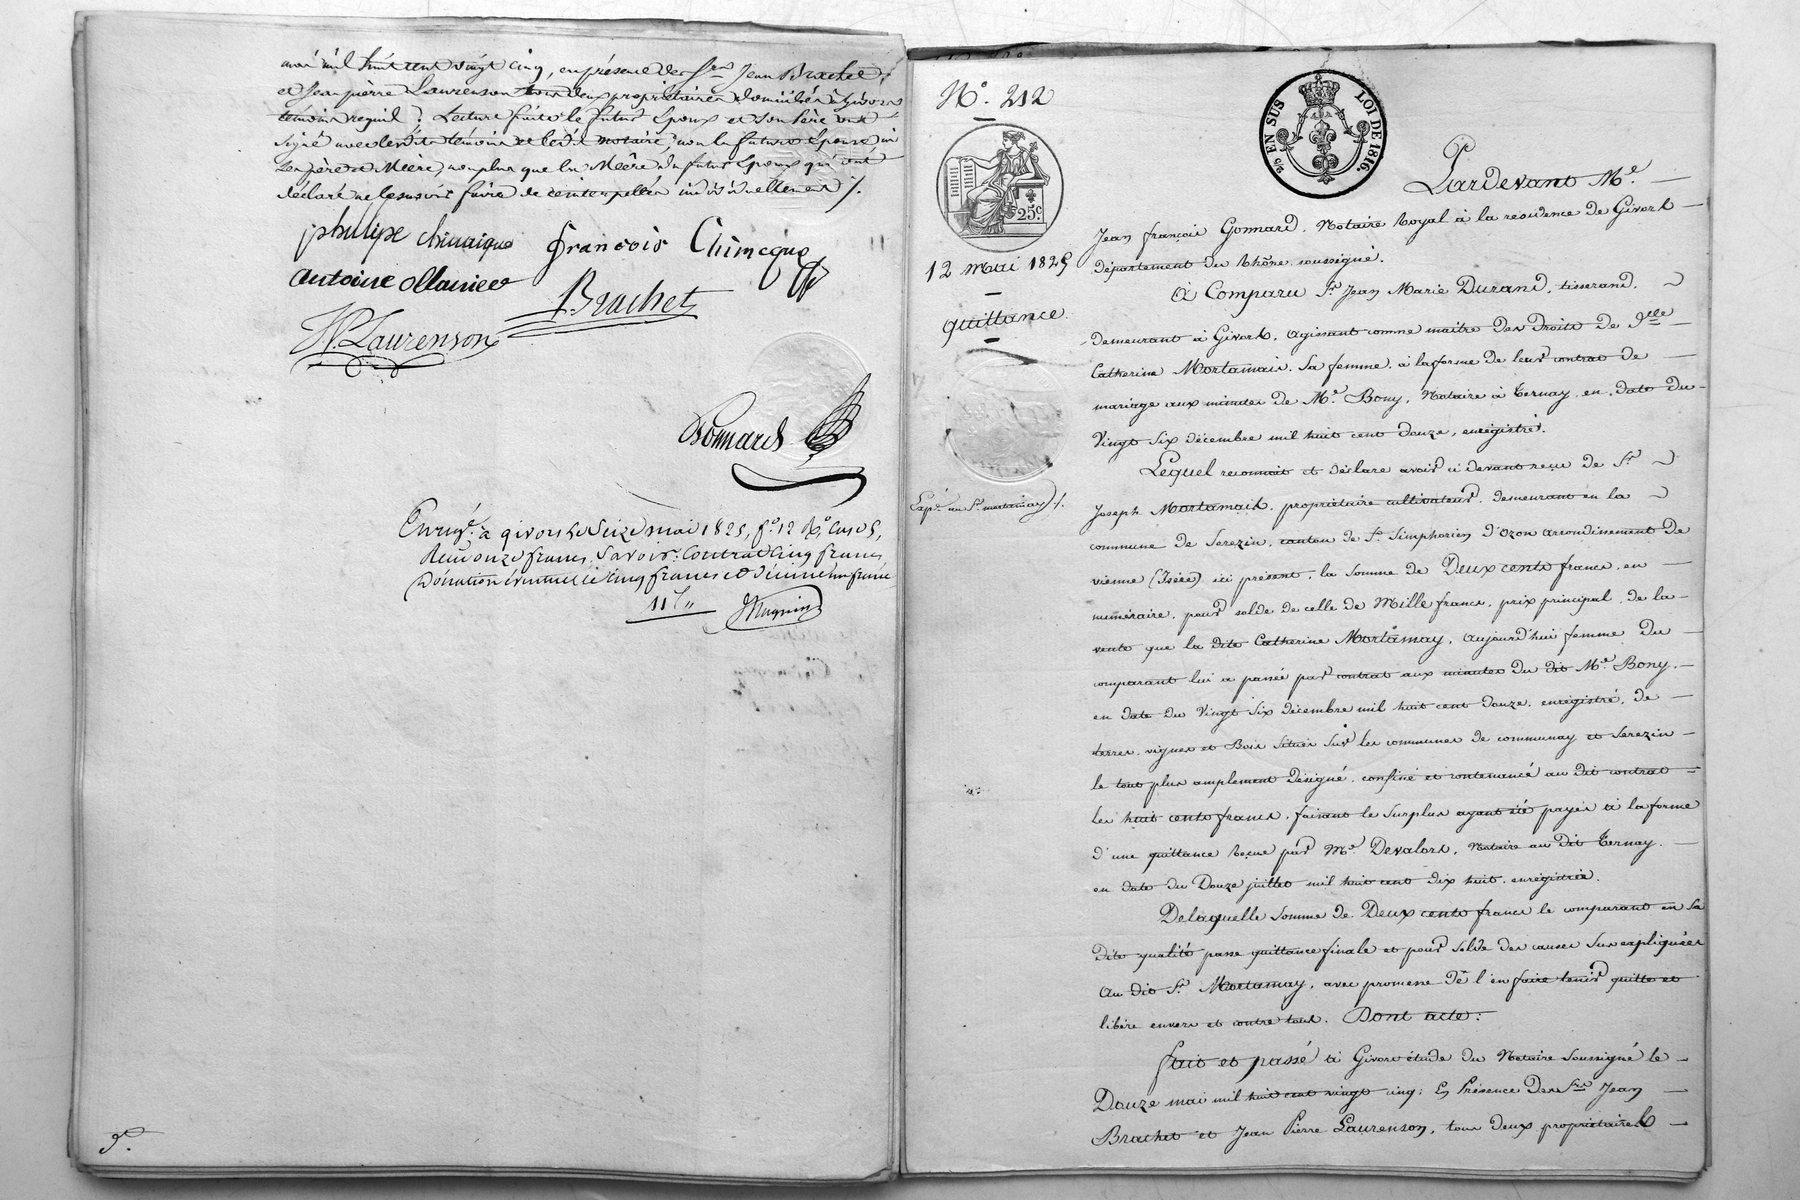 mai mil huit cent vingt cinq, en présence des Srs Jean Brachet,
et Jean pierre Laurenson tous deux propriétaires domiciliés à Givors
témoins requis. Lecture faite le futur Epoux et son Père ont
signé avec lesdits témoins et ledit notaire, non la future Epouse ni
ses père et Mère, non plus que la Mère du futur Epoux qui ont
déclaré ne le savoir faire de ce interpellés individuellement /.
philipe chimaique françois Chimeque
antoine ollanier
P. Brachet
JP. Laurenson
Gonnard
Enregé. à givors le Seize mai 1825, fo. 12 Ro. Cases 5,
Reçu onze francs, Savoir: Contrat Cinq francs
Donation éventuelle Cinq francs et Décime un franc
11 f „
Magnin
No. 212
25c
12 Mai 1825
quittance.
Expé. au Sr. mortamay /.
2/5 EN SUS
LOI DE 1816.
Pardevant Me.
Jean françois Gonnard, Notaire Royal à la résidence de Givors
département du Rhône soussigné.
A Comparu Sr. Jean Marie Durand, tisserand,
demeurant à Givors, agissant comme maitre des Droits de Delle
Catherine Mortamais, Sa femme, à la forme de leur contrat de
mariage aux minutes de Me. Bony, Notaire à Ternay, en date du
Vingt Six décembre mil huit cent douze, enregistré.
Lequel reconnait et déclare avoir ci devant reçu de Sr.
Joseph Mortamais, propriétaire cultivateur, demeurant en la
commune de Serezin, canton de St. Simphorien d'Ozon arrondissement de
vienne (Isère) ici présent, la Somme de Deux cents francs, en
numéraire, pour solde de celle de Mille francs, prix principal, de la
vente que la dite Catherine Mortamay, aujourd'hui femme du
comparant lui a passée par contrat aux minutes du dit Me. Bony,
en date du Vingt Six décembre mil huit cent douze, enregistré, de
terres, vignes et Bois Situés Sur les communes de communay et Serezin
le tout plus amplement désigné, confiné et contenancé au dit contrat
Les huit cents francs, faisant le Surplus ayant été payés à la forme
d'une quittance Reçue par Me. Devalors, Notaire au dit Ternay,
en date du Douze juillet mil huit cent dix huit, enregistrée.
De laquelle Somme de Deux cents francs le comparant en Sa
dite qualité passe quittance finale et pour Solde des causes Sus expliquées
Au dit Sr. Mortamay, avec promesse de l'en faire tenir quitte et
libéré envers et contre tous. Dont acte:
fait et passé à Givors étude du Notaire Soussigné le
Douze mai mil huit cent vingt cinq; En Présence des Srs Jean
Brachet et Jean Pierre Laurenson, tous deux propriétaires